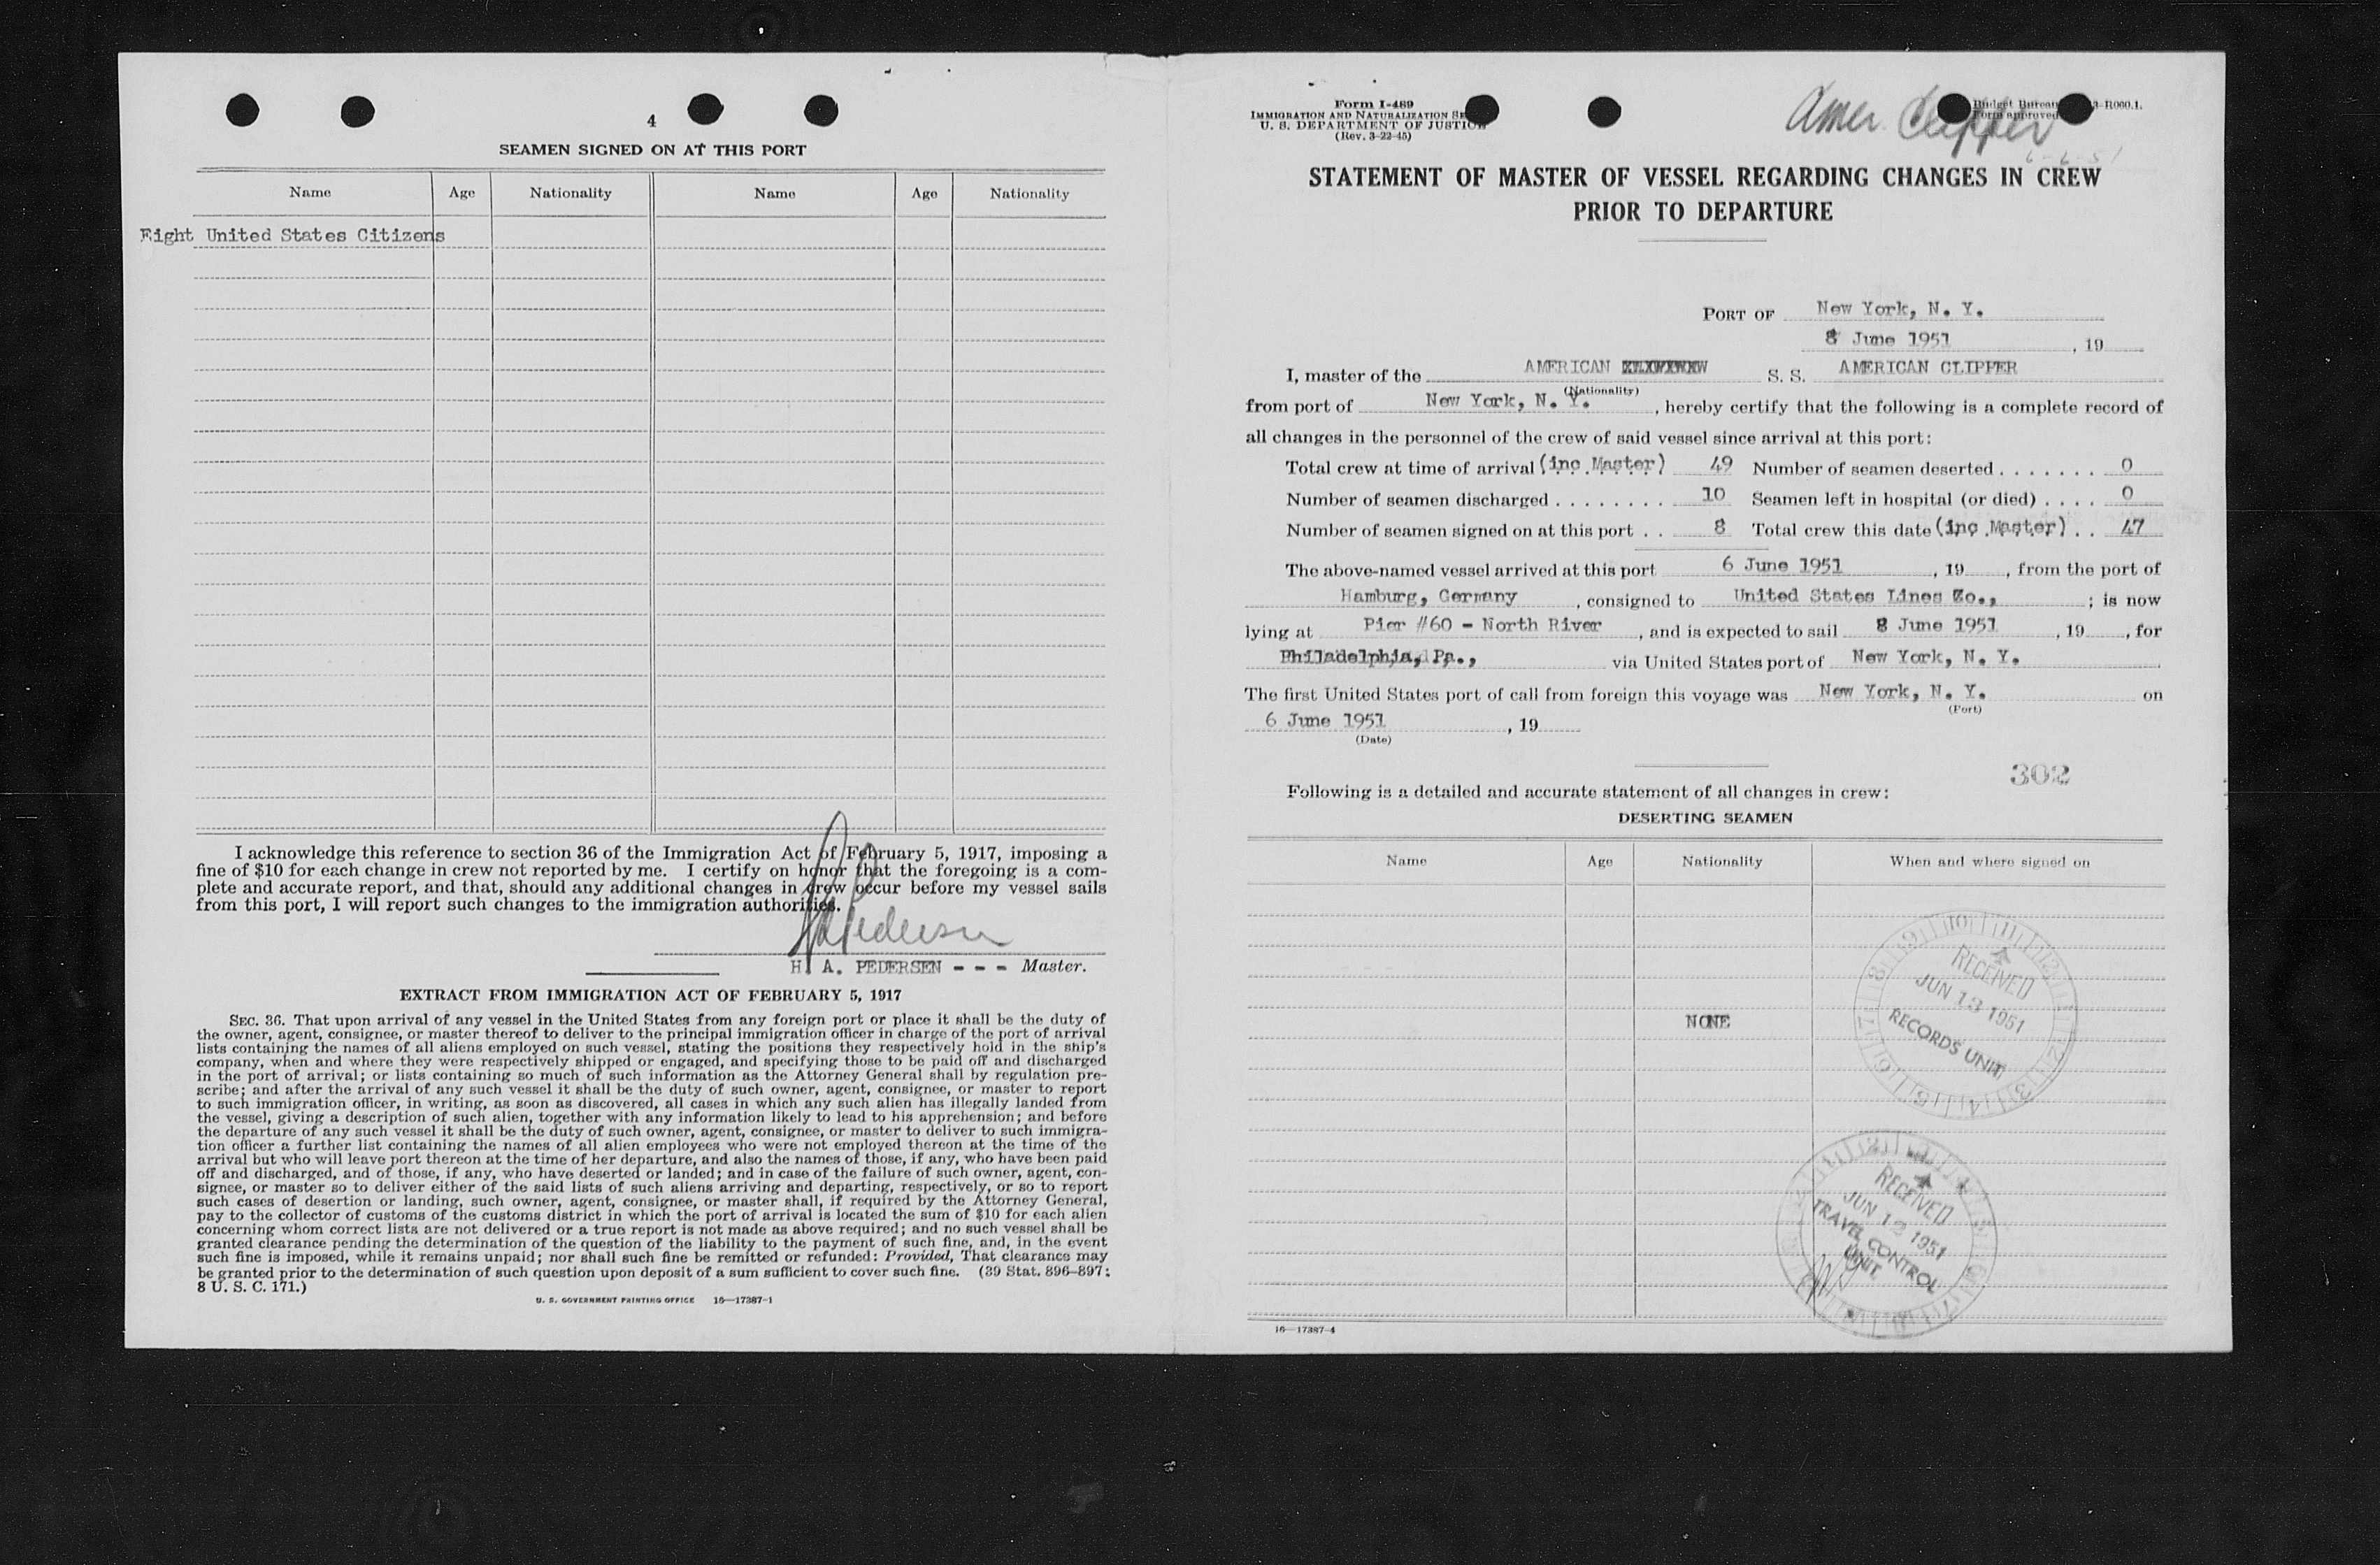 4
SEAMEN SIGNED ON AT THIS PORT
Name Age Nationality Name Age Nationality
Eight United States Citizens
I acknowledge this reference to section 36 of the Immigration Act of February 5, 1917, imposing a
fine of $10 for each change in crew not reported by me. I certify on honor that the foregoing is a com-
plete and accurate report, and that, should any additional changes in crew occur before my vessel sails
from this port, I will report such changes to the immigration authorities.
H A Pedersen
H. A. PEDERSEN - - - Master.
EXTRACT FROM IMMIGRATION ACT OF FEBRUARY 5, 1917
SEC. 36. That upon arrival of any vessel in the United States from any foreign port or place it shall be the duty of
the owner, agent, consignee, or master thereof to deliver to the principal immigration officer in charge of the port of arrival
lists containing the names of all aliens employed on such vessel, stating the positions they respectively hold in the ship's
company, when and where they were respectively shipped or engaged, and specifying those to be paid off and discharged
in the port of arrival; or lists containing so much of such information as the Attorney General shall by regulation pre-
scribe; and after the arrival of any such vessel it shall be the duty of such owner, agent, consignee, or master to report
to such immigration officer, in writing, as soon as discovered, all cases in which any such alien has illegally landed from
the vessel, giving a description of such alien, together with any information likely to lead to his apprehension; and before
the departure of any such vessel it shall be the duty of such owner, agent, consignee, or master to deliver to such immigra-
tion officer a further list containing the names of all alien employees who were not employed thereon at the time of the
arrival but who will leave port thereon at the time of her departure, and also the names of those, if any, who have been paid
off and discharged, and of those, if any, who have deserted or landed; and in case of the failure of such owner, agent, con-
signee, or master so to deliver either of the said lists of such aliens arriving and departing, respectively, or so to report
such cases of desertion or landing, such owner, agent, consignee, or master shall, if required by the Attorney General,
pay to the collector of customs of the customs district in which the port of arrival is located the sum of $10 for each alien
concerning whom correct lists are not delivered or a true report is not made as above required; and no such vessel shall be
granted clearance pending the determination of the question of the liability to the payment of such fine, and, in the event
such fine is imposed, while it remains unpaid; nor shall such fine be remitted or refunded: Provided, That clearance may
be granted prior to the determination of such question upon deposit of a sum sufficient to cover such fine. (39 Stat. 896-897;
8 U. S. C. 171.)
U. S. GOVERNMENT PRINTING OFFICE 16—17387-1
Form I-489
IMMIGRATION AND NATURALIZATION
U. S. DEPARTMENT OF JUSTICE
(Rev. 3-22-45)
Amer. Clipper
6-6-51
Budget Bureau R060.1.
Form approved
STATEMENT OF MASTER OF VESSEL REGARDING CHANGES IN CREW
PRIOR TO DEPARTURE
PORT OF New York, N. Y.
8 June 1951, 19
I, master of the AMERICAN S. S. AMERICAN CLIPPER
(Nationality)
from port of New York, N. Y., hereby certify that the following is a complete record of
all changes in the personnel of the crew of said vessel since arrival at this port:
Total crew at time of arrival (inc Master) 49 Number of seamen deserted . . . . . . . 0
Number of seamen discharged . . . . . . . . 10 Seamen left in hospital (or died) . . . . 0
Number of seamen signed on at this port . . 8 Total crew this date (inc Master) . . 47
The above-named vessel arrived at this port 6 June 1951, 19, from the port of
Hamburg, Germany, consigned to United States Lines Co.,; is now
lying at Pier #60 - North River, and is expected to sail 8 June 1951, 19, for
Philadelphia, Pa., via United States port of New York, N. Y.
The first United States port of call from foreign this voyage was New York, N. Y. on
(Port)
6 June 1951, 19
(Date)
302
Following is a detailed and accurate statement of all changes in crew:
DESERTING SEAMEN
Name Age Nationality When and where signed on
NONE
RECEIVED
JUN 13 1951
RECORDS UNIT
RECEIVED
JUN 12 1951
TRAVEL CONTROL
UNIT
16—17387-4